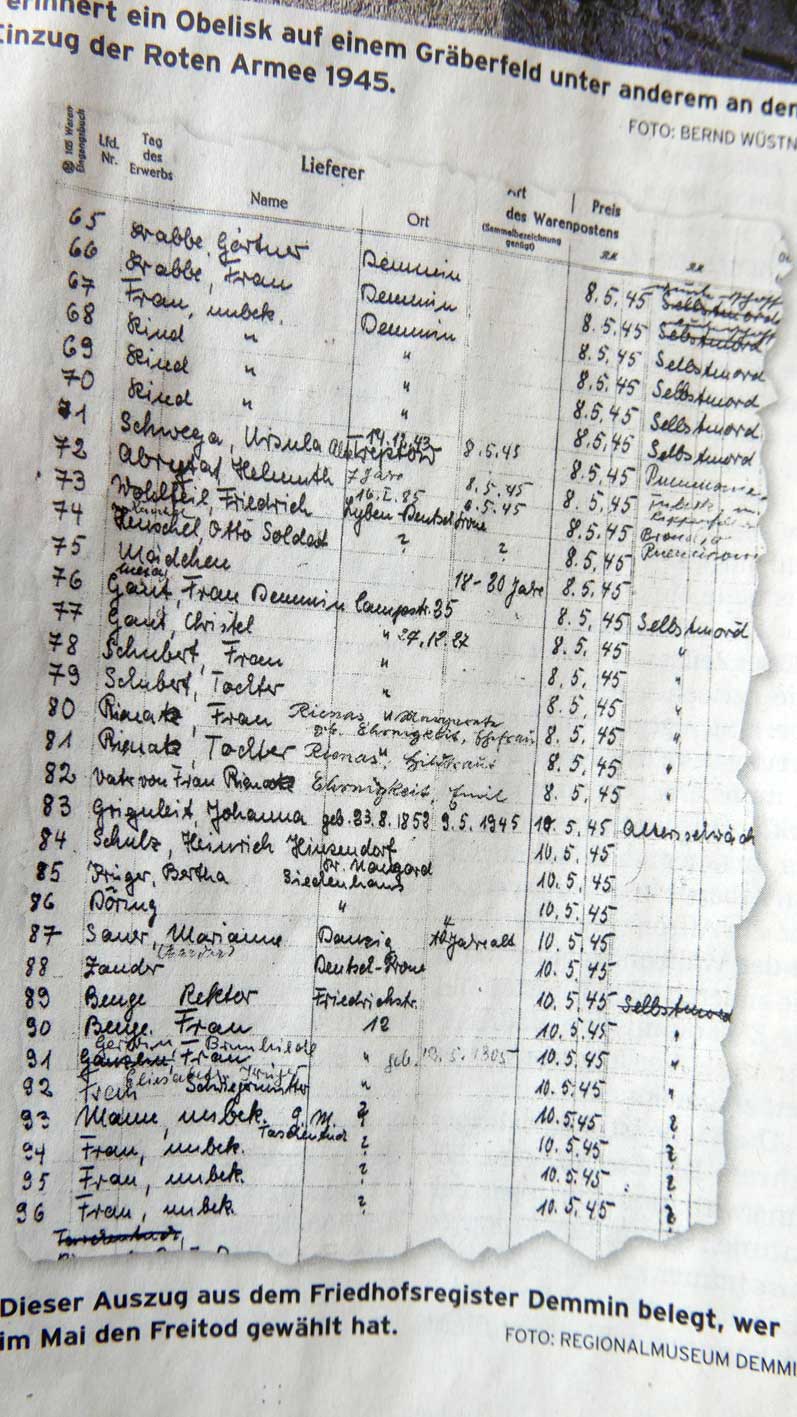 erinnert ein Obelisk auf einem Gräberfeld unter anderem an den
Einzug der Roten Armee 1945.
FOTO: BERND WÜSTN
105 Waren Eingangsbuch
Lfd. Nr. Tag des Erwerbs Lieferer Art des Warenpostens Preis
Name Ort (Sammelbezeichnung genügt) RM RM
65 Krabbe, Gärtner Demmin 8.5.45 Selbstmord
66 Krabbe, Frau Demmin 8.5.45 Selbstmord
67 Frau, unbek. Demmin 8.5.45 Selbstmord
68 Kind " " 8.5.45 Selbstmord
69 Kind " " 8.5.45 Selbstmord
70 Kind " " 8.5.45 Selbstmord
71 Schwega, Ursula Treptow 14.12.43 8.5.45 8.5.45
72 Helmuth 7 Jare 8.5.45 8.5.45
73 Wohlfeil, Friedrich 16.I.85 6.5.45 8.5.45
74 Henschel, Otto Soldat ? ? 8.5.45
75 Mädchen 18-20 Jare 8.5.45
76 Gaut, Frau Demmin 35 8.5.45 Selbstmord
77 Gaut, Christel " 27.12.27 8.5.45 "
78 Schubert, Frau " 8.5.45 "
79 Schubert, Tochter " 8.5.45 "
80 Frau Rienas Margarete geb. Ehronigkeit, Ehefrau 8.5.45 "
81 Tochter Rienas 8.5.45 "
82 Vater von Frau Ehronigkeit, Emil 8.5.45 "
83 Griguleit, Johanna geb. 23.8.1858 9.5.1945 10.5.45
84 Schulz, Heinrich Hinzendorf 10.5.45
Kr. Naugard
85 Krüger, Bertha 10.5.45
86 Döring " 10.5.45
87 Sauer, Marianne Danzig Jahre alt 10.5.45
88 Zander Deutsch-Krone 10.5.45
89 Benge Rektor Friedrichstr. 10.5.45 Selbstmord
90 Benge, Frau 12 10.5.45 "
91 Frau Brunhilde " geb. 10.5.45 "
92 Frau Schwiegermutter " 10.5.45 "
93 Mann, unbek. g. M. ? 10.5.45 ?
Taschentuch
94 Frau, unbek. ? 10.5.45 ?
95 Frau, unbek. ? 10.5.45 ?
96 Frau, unbek. ? 10.5.45 ?
Dieser Auszug aus dem Friedhofsregister Demmin belegt, wer
im Mai den Freitod gewählt hat.
FOTO: REGIONALMUSEUM DEMMI